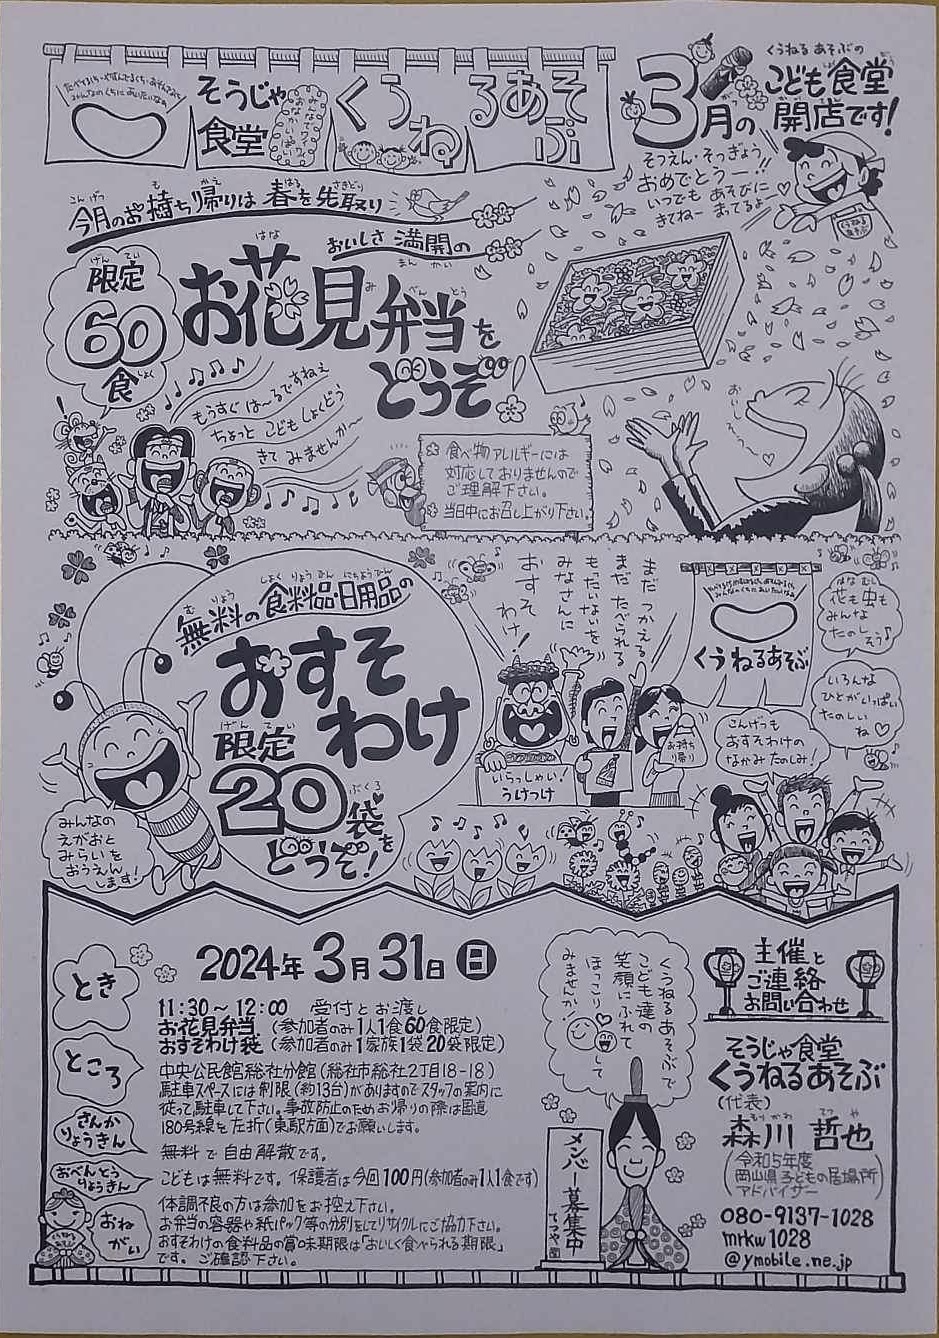 そうじゃ
食堂
くうねるあそぶ
3月の
くうねるあそぶの
こども食堂
開店です!
そつえん・そつぎょう!!
おめでとうー!
いつでもあそびに
きてねー まってるよ
今月のお持ち帰りは 春を先取り
おいしさ満開の
限定
60
食
お花見弁当を
どうぞ!
もうすぐは〜るですねぇ
ちょっとこどもしょくどう
きてみませんか〜
食べ物アレルギーには
対応しておりませんので
ご理解下さい。
当日中にお召し上がり下さい。
おいし〜
無料の食料品・日用品の
おすそ
わけ
限定
20袋を
どうぞ!
みんなの
えがおと
みらいを
おうえん
します!
まだつかえる
まだたべられる
もったいないを
みなさんに
おすそ
わけ!
いらっしゃい!
うけつけ
お持ち
帰り
くうねるあそぶ
花も虫も
みんな
たのしそう♪
いろんな
ひとがいっぱい
たのしい
ね♡
こんげつも
おすそわけの
なかみたのしみ!
とき
2024年3月31日(日)
11:30〜12:00 受付とお渡し
お花見弁当 (参加者のみ1人1食60食限定)
おすそわけ袋 (参加者のみ1家族1袋20袋限定)
ところ
中央公民館総社分館(総社市総社2丁目8-18)
駐車スペースには制限(約13台)がありますでスタッフの案内に
従って駐車して下さい。事故防止のためお帰りの際は国道
180号線を左折(東駅方面)でお願いします。
さんか
りょうきん
無料で自由解散です。
おべんとう
りょうきん
こどもは無料です。保護者は今回100円(参加者のみ1人1食です)
おね
がい
体調不良の方は参加をお控え下さい。
お弁当の容器や紙パック等の分別をしてリサイクルにご協力下さい。
おすそわけの食料品の賞味期限は「おいしく食べられる期限」
です。ご確認下さい。
くうねるあそぶで
こども達の
笑顔にふれて
ほっこりして
みませんか!
メンバー募集中
てつや園
主催と
ご連絡
お問い合わせ
そうじゃ食堂
くうねるあそぶ
(代表)
森川 哲也
(令和5年度
岡山県子どもの居場所
アドバイザー)
080-9137-1028
mrkw1028
@ymobile.ne.jp